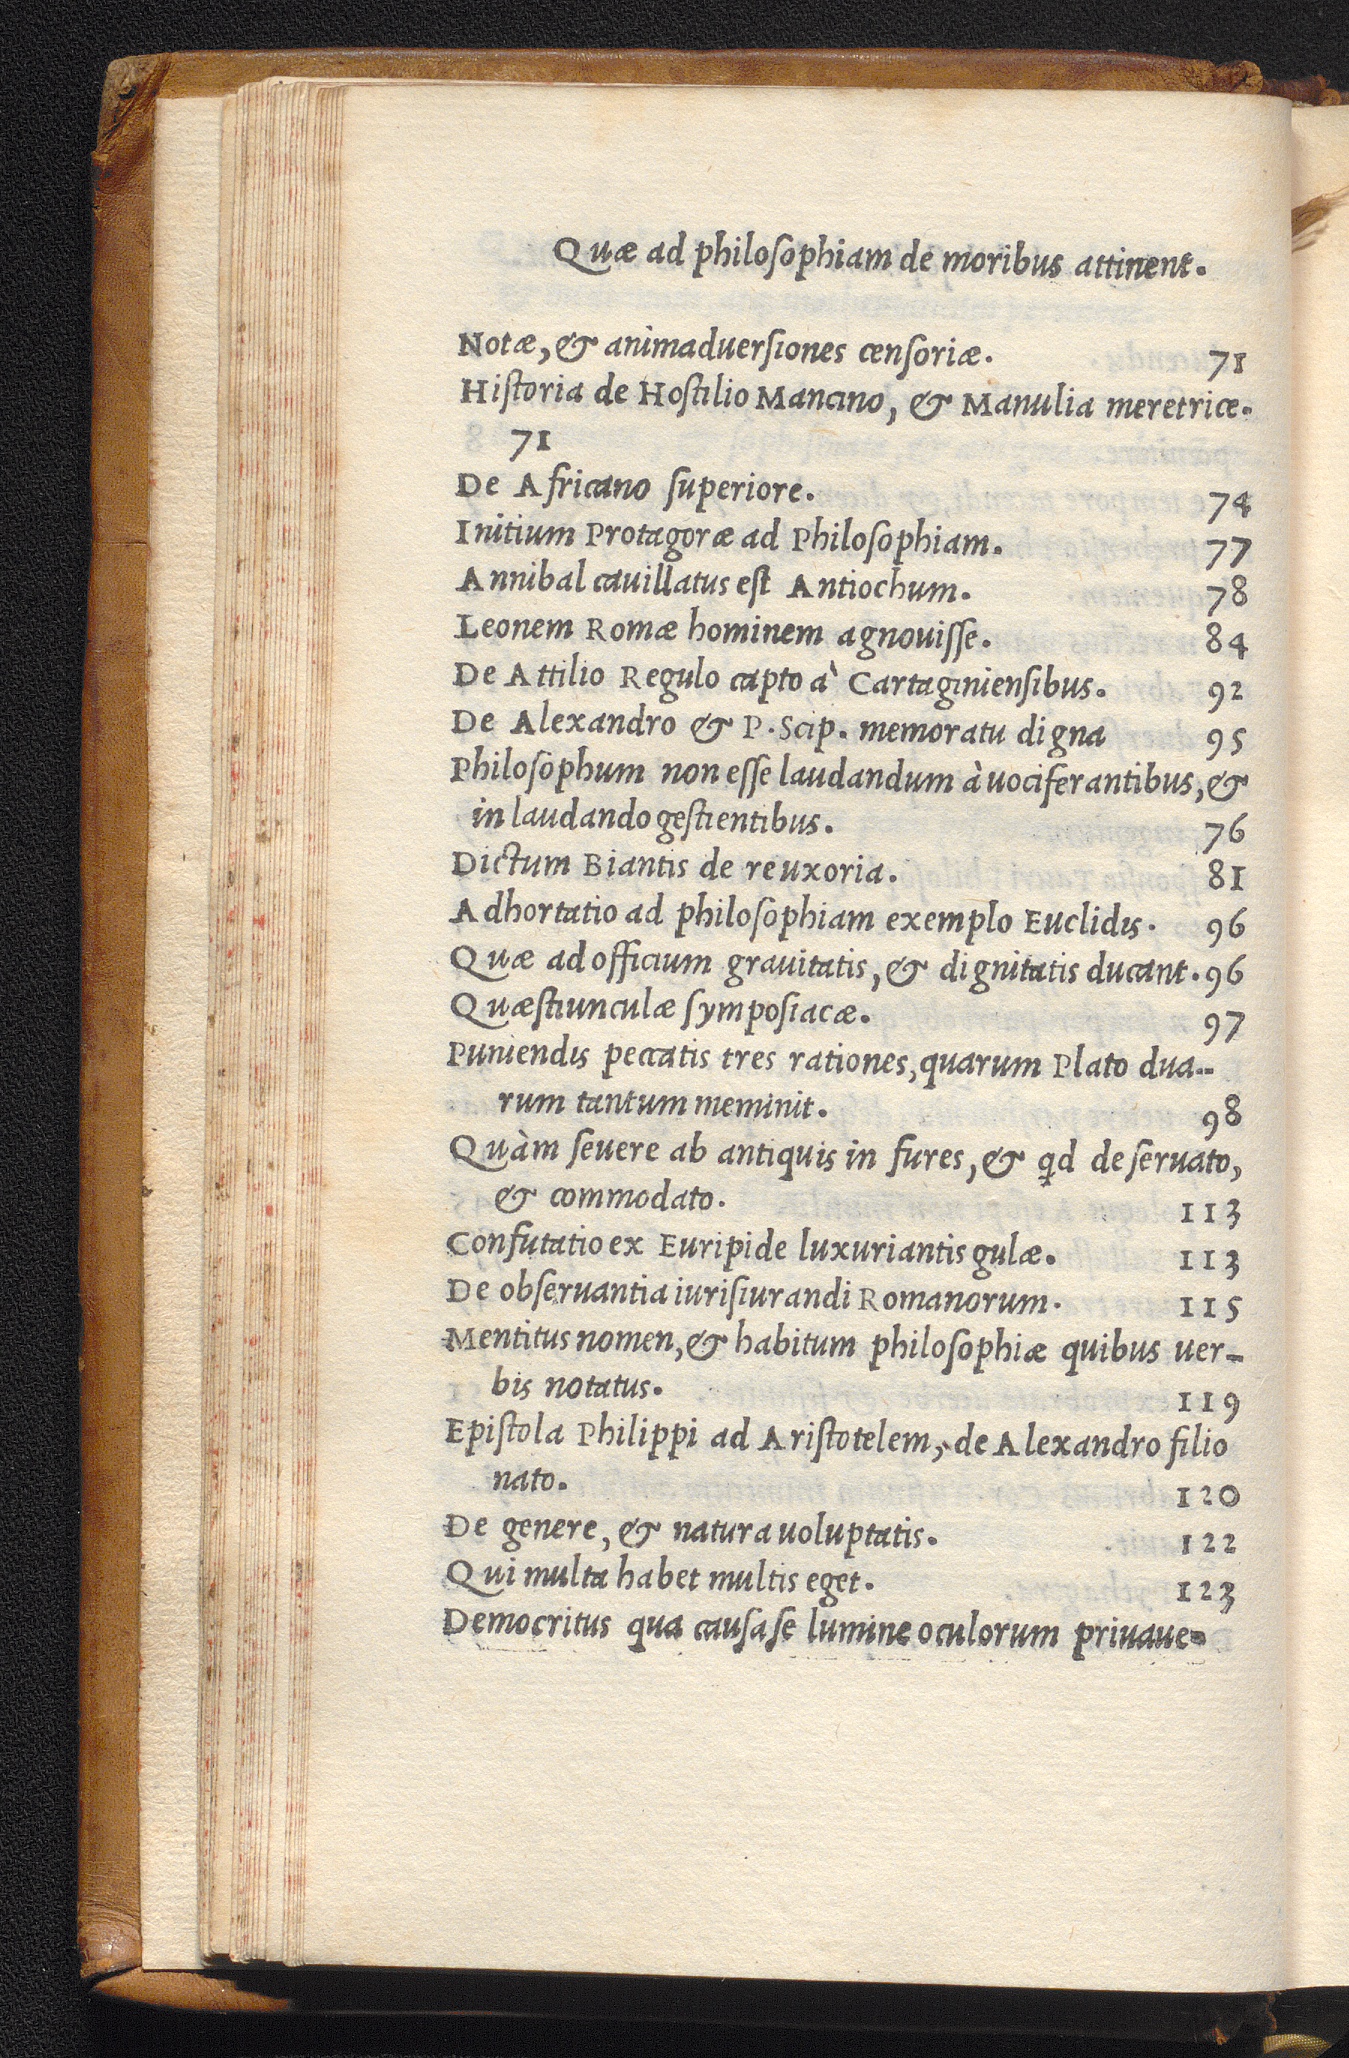 Quæ ad philoſophiam de moribus attinent.
Notæ, & animaduerſiones cenſoriæ. 71
Hiſtoria de Hoſtilio Mancino, & Manulia meretrice.
71
De Africano ſuperiore. 74
Initium Protagoræ ad Philoſophiam. 77
Annibal cauillatus eſt Antiochum. 78
Leonem Romæ hominem agnouiſſe. 84
De Attilio Regulo capto à Cartaginienſibus. 92
De Alexandro & P. Scip. memoratu digna 95
Philoſophum non eſſe laudandum à uociferantibus, &
in laudando geſtientibus. 76
Dictum Biantis de re uxoria. 81
Adhortatio ad philoſophiam exemplo Euclidis. 96
Quæ ad officium grauitatis, & dignitatis ducant. 96
Quæſtiunculæ ſympoſiacæ. 97
Puniendis peccatis tres rationes, quarum Plato dua-
rum tantum meminit. 98
Quàm ſeuere ab antiquis in fures, & qd de ſeruato,
& commodato. 113
Confutatio ex Euripide luxuriantis gulæ. 113
De obſeruantia iuriſiurandi Romanorum. 115
Mentitus nomen, & habitum philoſophiæ quibus uer-
bis notatus. 119
Epiſtola Philippi ad Ariſtotelem, de Alexandro filio
nato. 120
De genere, & natura uoluptatis. 122
Qui multa habet multis eget. 123
Democritus qua cauſa ſe lumine oculorum priuaue-